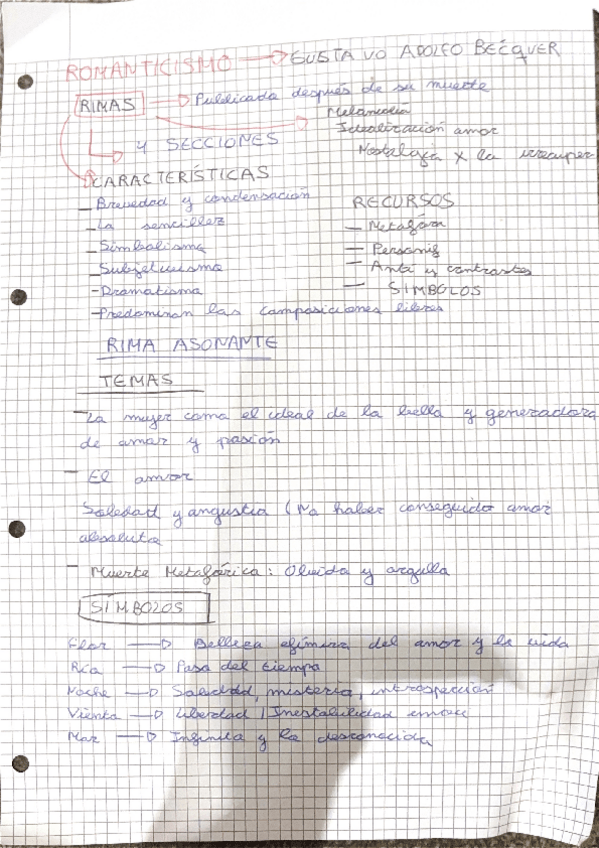 ROMANTICISMO → GUSTAVO ADOLFO BÉCQUER
RIMAS → Publicada después de su muerte
Melancolía
Idealización amor
Nostalgia x la irrecuper
4 SECCIONES
CARACTERÍSTICAS
- Brevedad y condensación
- La sencillez
- Simbolismo
- Subjetivismo
- Dramatismo
- Predominan las composiciones libres
RECURSOS
- Metáfora
- Personif
- Anti y contrastes
- SIMBOLOS
RIMA ASONANTE
TEMAS
- La mujer como el ideal de la bella y generadora
de amor y pasión
- El amor
Soledad y angustia (No haber conseguido amor
absoluto
- Muerte Metafórica: Olvido y orgullo
SÍMBOLOS
Flor → Belleza efímera del amor y la vida
Río → Paso del tiempo
Noche → Soledad, misterio, introspección
Viento → Libertad / Inestabilidad emoc
Mar → Infinito y lo desconocido